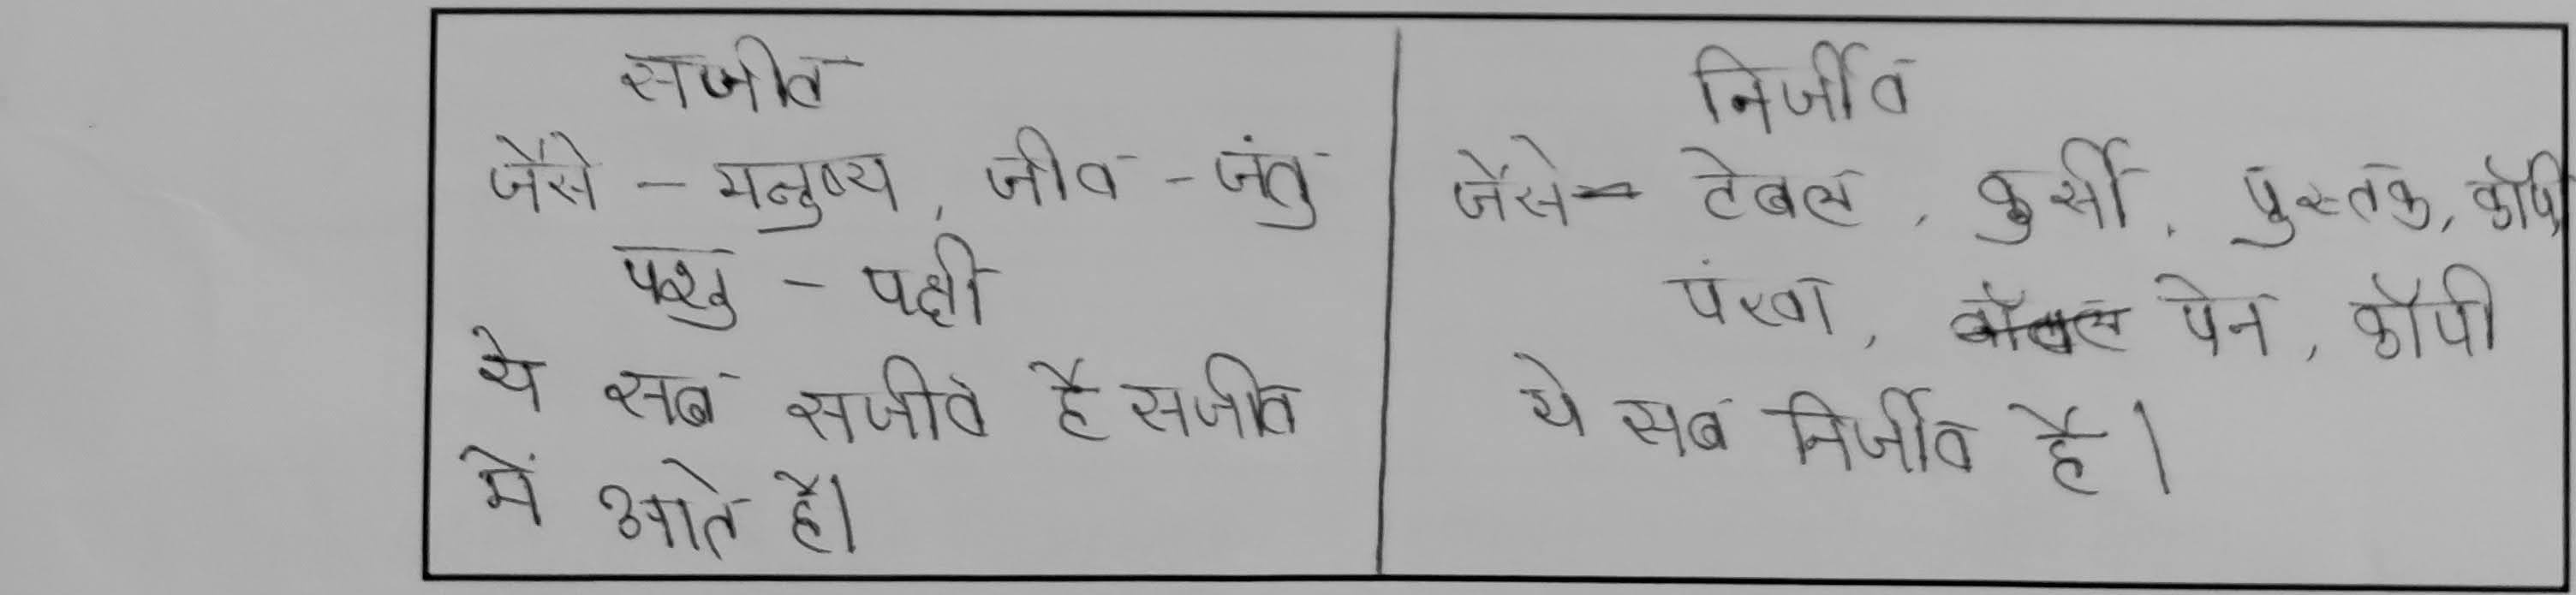 सजीव
जैसे - मनुष्य, जीव - जंतु
पशु - पक्षी
ये सब सजीव है सजीव
में आते है।
निर्जीव
जैसे - टेबल, कुर्सी, पुस्तक, कॉपी
पंखा, पेन, कॉपी
ये सब निर्जीव है।